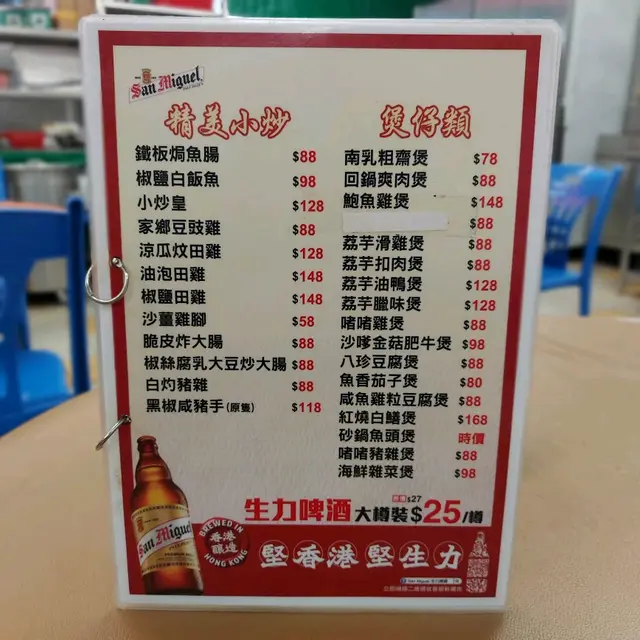 San Miguel
精美小炒
鐵板焗魚腸 $88
椒鹽白飯魚 $98
小炒皇 $128
家鄉豆豉雞 $88
涼瓜炆田雞 $128
油泡田雞 $148
椒鹽田雞 $148
沙薑雞腳 $58
脆皮炸大腸 $88
椒絲腐乳大豆炒大腸 $88
白灼豬雜 $88
黑椒咸豬手(原隻) $118
煲仔類
南乳粗齋煲 $78
回鍋爽肉煲 $88
鮑魚雞煲 $148
$88
荔芋滑雞煲 $88
荔芋扣肉煲 $88
荔芋油鴨煲 $128
荔芋臘味煲 $128
啫啫雞煲 $88
沙嗲金菇肥牛煲 $98
八珍豆腐煲 $88
魚香茄子煲 $80
咸魚雞粒豆腐煲 $88
紅燒白鱔煲 $168
砂鍋魚頭煲 時價
啫啫豬雜煲 $88
海鮮雜菜煲 $98
$27
生力啤酒 大樽裝 $25/樽
San Miguel
BREWED IN
香港
釀造
HONG KONG
堅香港堅生力